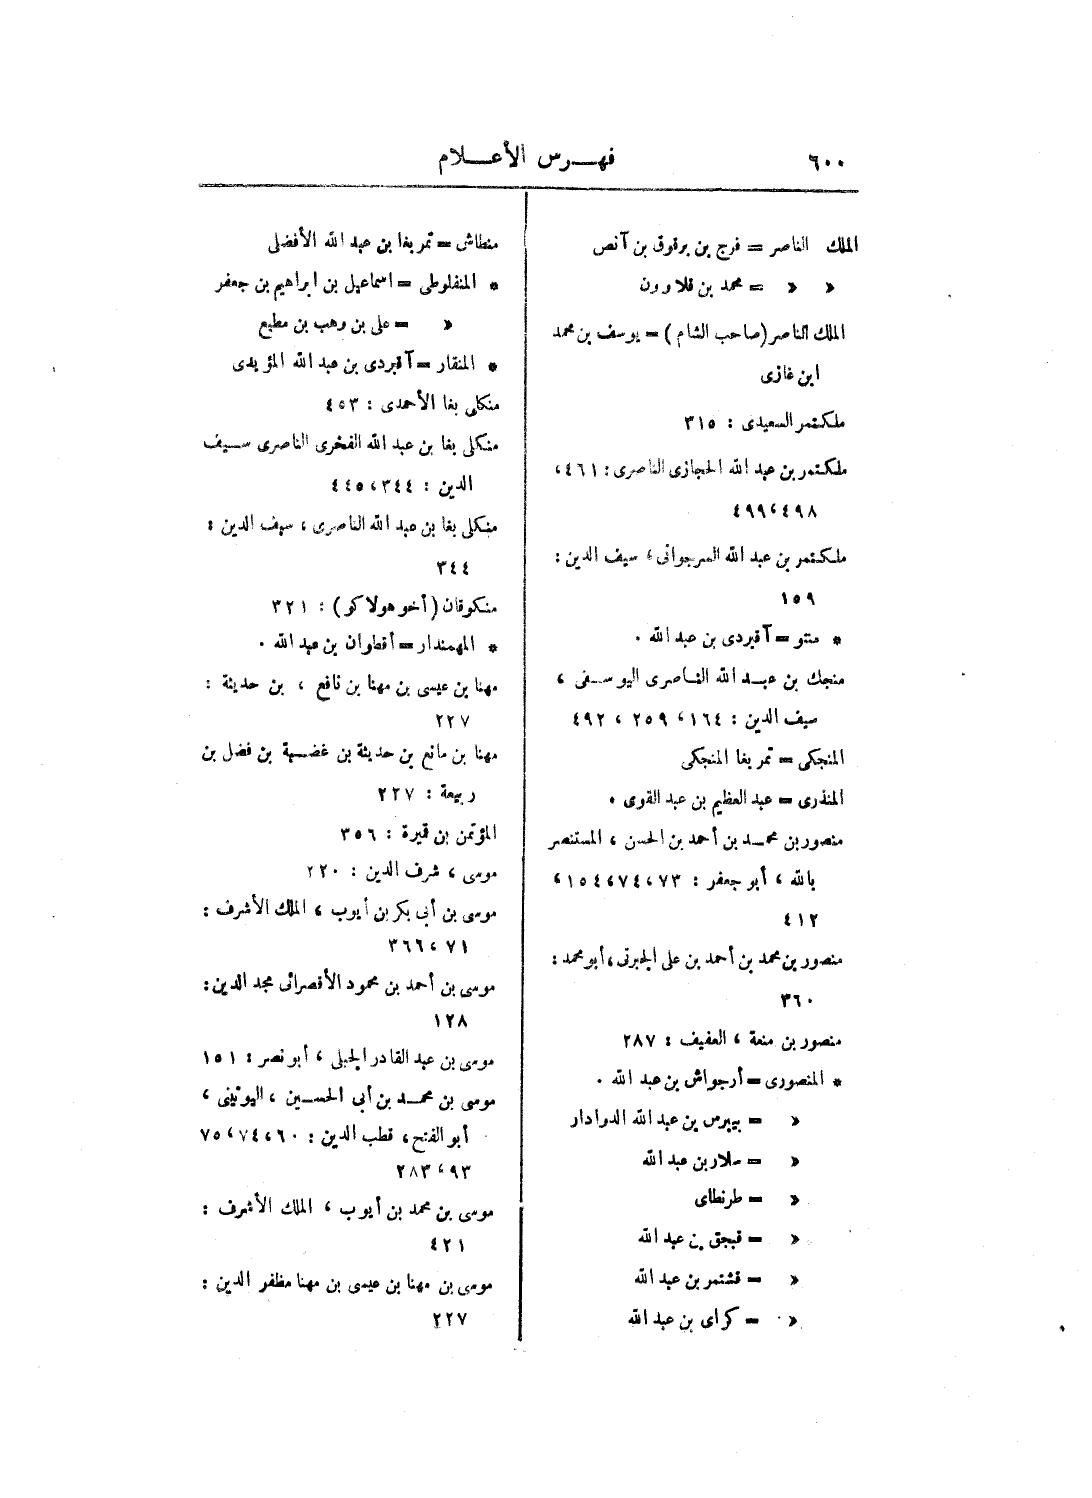 ٦٠٠
فهرس الأعلام
الملك الناصر = فرج بن برقوق بن آنص
« « = محمد بن قلاوون
الملك الناصر (صاحب الشام) = يوسف بن محمد
ابن غازى
ملكتمر السعيدى : ٣١٥
ملكتمر بن عبد الله الحجازى الناصرى : ٤٦١،
٤٩٨، ٤٩٩
ملكتمر بن عبد الله السرجوانى، سيف الدين :
١٥٩
* منتو = آقبردى بن عبد الله .
منجك بن عبد الله الناصرى اليوسفى ،
سيف الدين : ١٦٤، ٢٥٩ ، ٤٩٢
المنجكى = تمربغا المنجكى
المنذرى = عبد العظيم بن عبد القوى .
منصور بن محمد بن أحمد بن الحسن ، المستنصر
بالله ، أبو جعفر : ٧٣، ٧٤، ١٥٤ ،
٤١٢
منصور بن محمد بن أحمد بن على الجبرتى، أبو محمد :
٣٦٠
منصور بن منعة ، العفيف : ٢٨٧
* المنصورى = أرجواش بن عبد الله .
« = بيبرس بن عبد الله الدوادار
« = سلار بن عبد الله
« = طرنطاى
« = قبجق بن عبد الله
« = قشتمر بن عبد الله
« = كراى بن عبد الله
منطاش = تمربغا بن عبد الله الأفضلى
* المنفلوطى = اسماعيل بن ابراهيم بن جعفر
« = على بن وهب بن مطيع
* المنقار = آقبردى بن عبد الله المؤيدى
منكلى بغا الأحمدى : ٤٥٣
منكلى بغا بن عبد الله الفخرى الناصرى سيف
الدين : ٣٤٤، ٤٤٥
منكلى بغا بن عبد الله الناصرى ، سيف الدين :
٣٤٤
منكوقان (أخو هولاكو) : ٣٢١
* المهمندار = أقطوان بن عبد الله .
مهنا بن عيسى بن مهنا بن نافع ، بن حديثة :
٢٢٧
مهنا بن مانع بن حديثة بن غضبية بن فضل بن
ربيعة : ٢٢٧
المؤتمن بن قميرة : ٣٥٦
موسى ، شرف الدين : ٢٢٠
موسى بن أبى بكر بن أيوب ، الملك الأشرف :
٧١ ، ٣٦٦
موسى بن أحمد بن محمود الأقصرائى مجد الدين :
١٢٨
موسى بن عبد القادر الجبلى ، أبو نصر : ١٥١
موسى بن محمد بن أبى الحسين ، اليونينى ،
أبو الفتح، قطب الدين : ٦٠، ٧٤، ٧٥
٩٣، ٢٨٣
موسى بن محمد بن أيوب ، الملك الأشرف :
٤٢١
موسى بن مهنا بن عيسى بن مهنا مظفر الدين :
٢٢٧